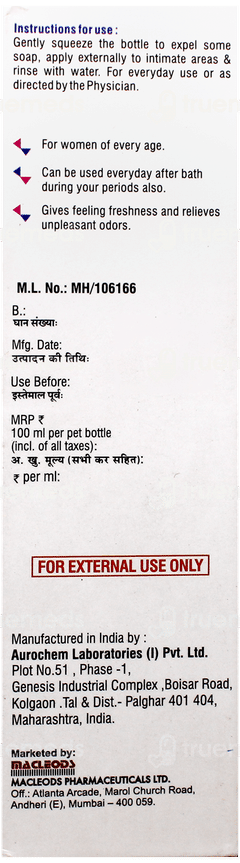 Instructions for use :
Gently squeeze the bottle to expel some
soap, apply externally to intimate areas &
rinse with water. For everyday use or as
directed by the Physician.
For women of every age.
Can be used everyday after bath
during your periods also.
Gives feeling freshness and relieves
unpleasant odors.
M.L. No.: MH/106166
B.:
घान संख्याः
Mfg. Date:
उत्पादन की तिथिः
Use Before:
इस्तेमाल पूर्वः
MRP ₹
100 ml per pet bottle
(incl. of all taxes):
अ. खु. मूल्य (सभी कर सहित):
₹ per ml:
FOR EXTERNAL USE ONLY
Manufactured in India by :
Aurochem Laboratories (I) Pvt. Ltd.
Plot No.51 , Phase -1,
Genesis Industrial Complex ,Boisar Road,
Kolgaon .Tal & Dist.- Palghar 401 404,
Maharashtra, India.
Marketed by:
MACLEODS
MACLEODS PHARMACEUTICALS LTD.
Off.: Atlanta Arcade, Marol Church Road,
Andheri (E), Mumbai – 400 059.